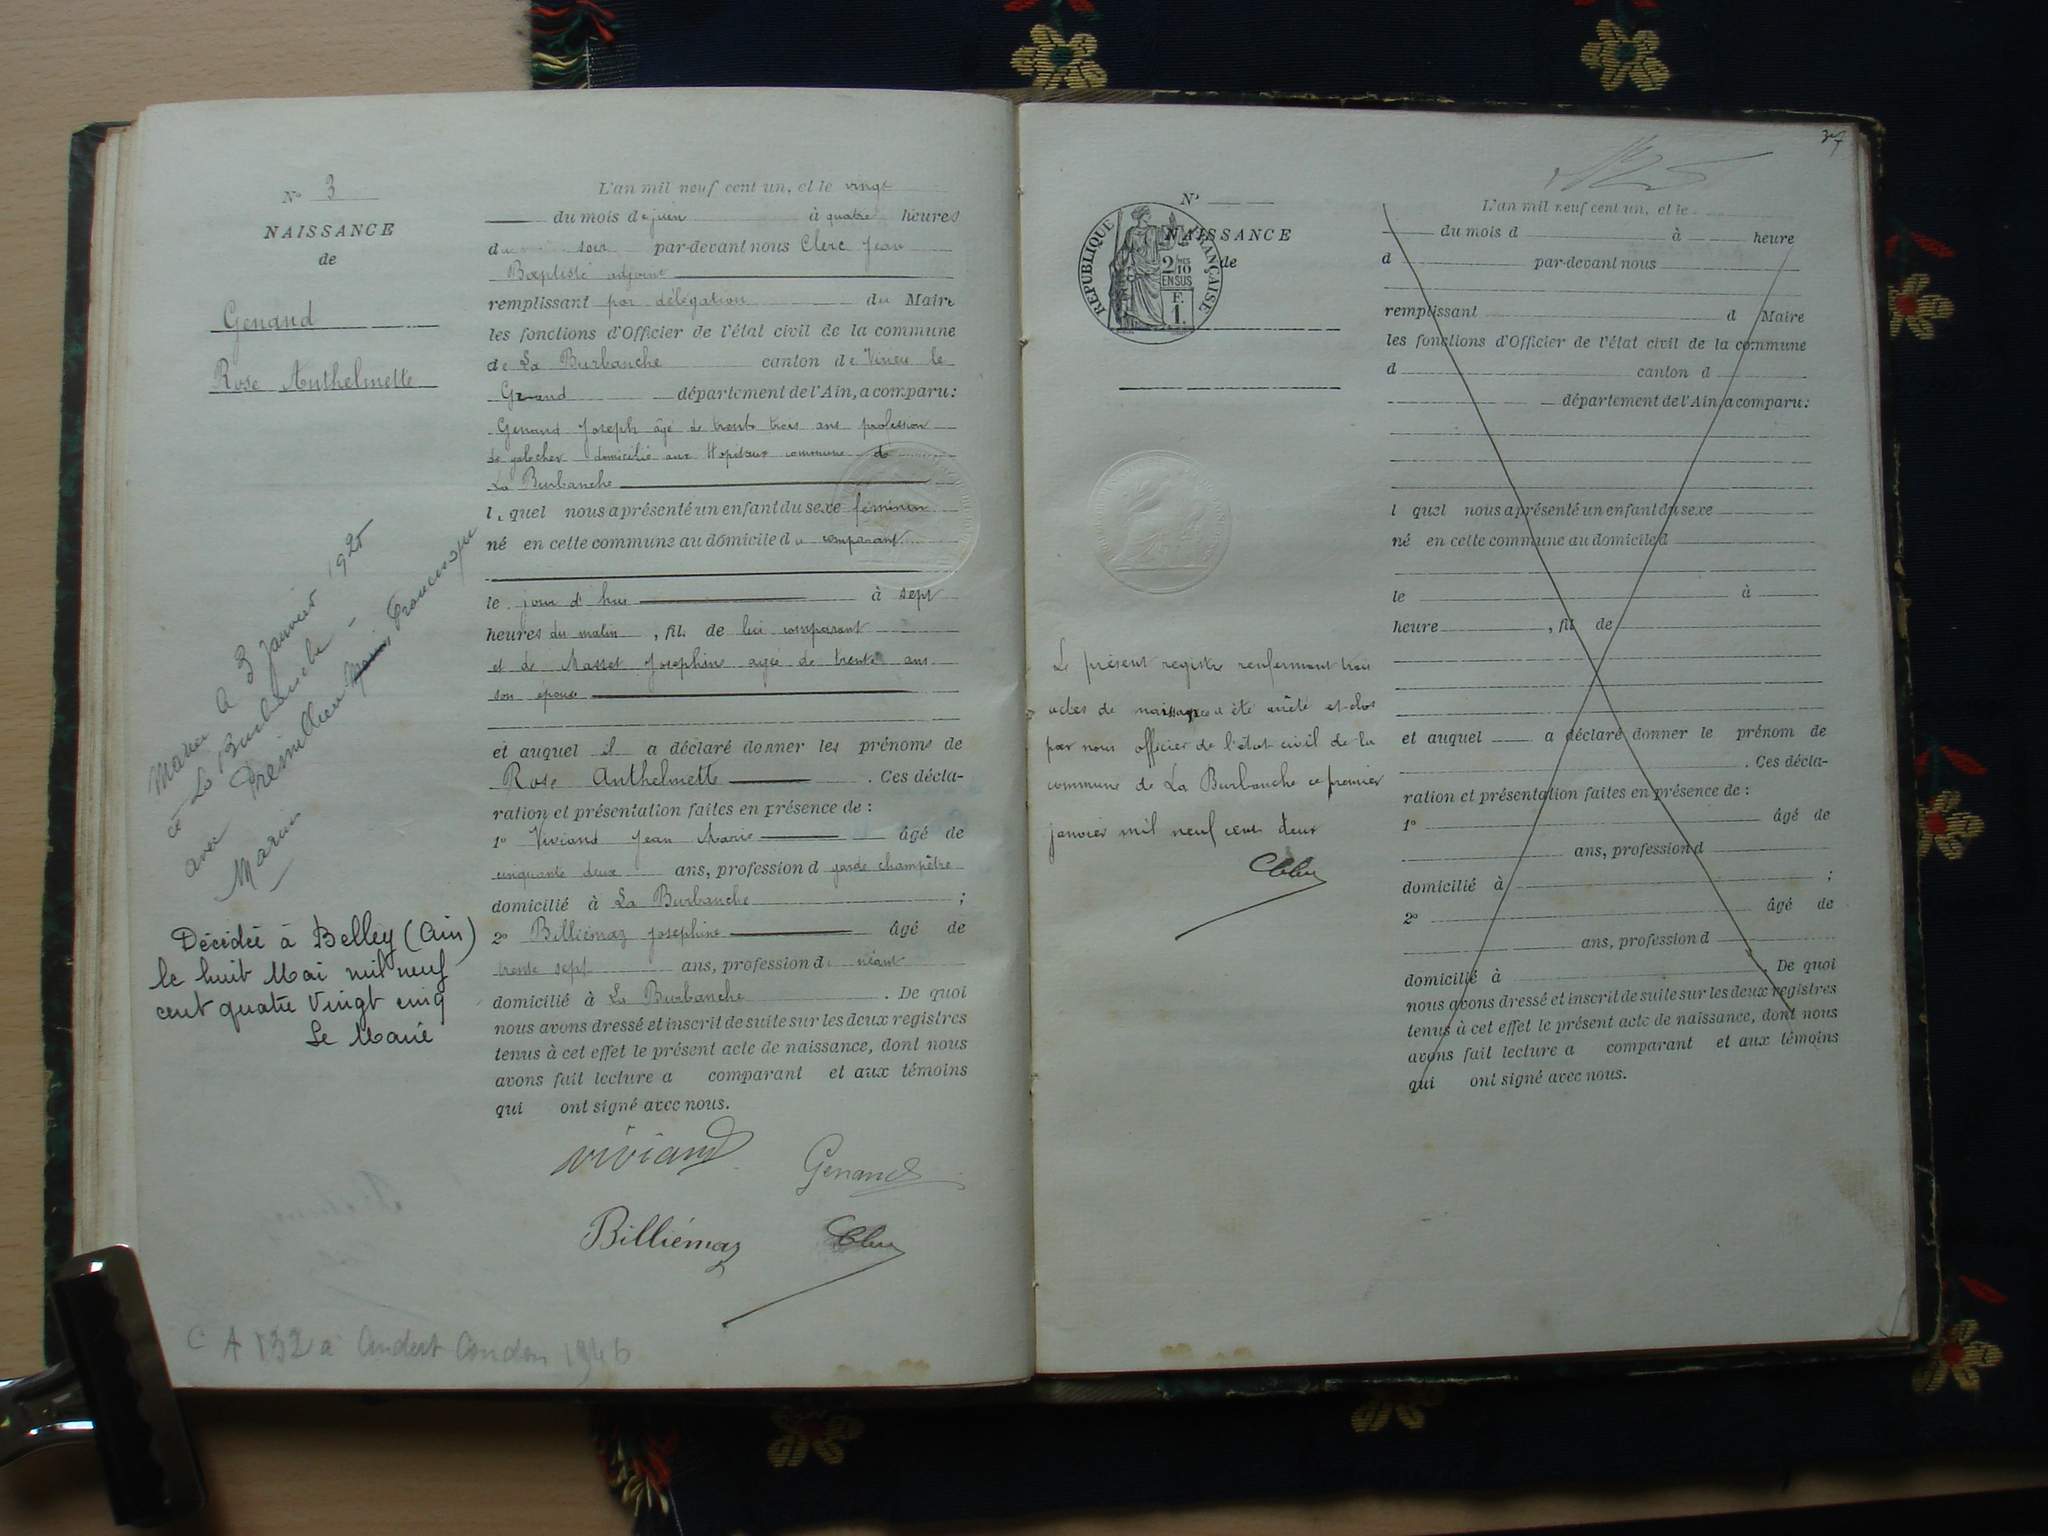 N° 3
NAISSANCE
de
Genand
Rose Anthelmette
Marié à 3 Janvier 1925
à La Burbanche
avec Francisque
Marius
Décédée à Belley (Ain)
le huit Mai mil neuf
cent quatre vingt cinq
Le Maire
L'an mil neuf cent un, et le vingt
du mois de juin à quatre heures
du soir par-devant nous Clerc Jean
Baptiste adjoint
remplissant par délégation du Maire
les fonctions d'Officier de l'état civil de la commune
de La Burbanche canton de Virieu le
Grand département de l'Ain, a comparu:
Genand Joseph âgé de trente trois ans profession
de galocher domicilié aux Hopitaux commune de
La Burbanche
lequel nous a présenté un enfant du sexe féminin
né en cette commune au domicile du comparant
le jour d'hui à sept
heures du matin, fil. de lui comparant
et de Masset Josephine agée de trente ans
son épouse
et auquel il a déclaré donner les prénoms de
Rose Anthelmette. Ces décla-
ration et présentation faites en présence de:
1° Viviand Jean Marie âgé de
cinquante deux ans, profession d garde champêtre
domicilié à La Burbanche;
2° Billiémaz Josephine âgé de
trente sept ans, profession d. néant
domicilié à La Burbanche. De quoi
nous avons dressé et inscrit de suite sur les deux registres
tenus à cet effet le présent acte de naissance, dont nous
avons fait lecture a comparant et aux témoins
qui ont signé avec nous.
Viviand
Genand
Billiémaz
Clerc
C A 132 à Andert Condon 1946
37
N°
NAISSANCE
de
REPUBLIQUE FRANÇAISE
2/10
EN SUS
F.
1.
Le présent registre renfermant trois
actes de naissances a été arrêté et clos
par nous officier de l'état civil de la
commune de La Burbanche ce premier
janvier mil neuf cent deux
Clerc
L'an mil neuf cent un, et le
du mois d à heure
d par-devant nous
remplissant d Maire
les fonctions d'Officier de l'état civil de la commune
d canton d
département de l'Ain, a comparu:
l quel nous a présenté un enfant du sexe
né en cette commune au domicile d
le à
heure, fil de
et auquel a déclaré donner le prénom de
. Ces décla-
ration et présentation faites en présence de:
1° âgé de
ans, profession d
domicilié à ;
2° âgé de
ans, profession d
domicilié à . De quoi
nous avons dressé et inscrit de suite sur les deux registres
tenus à cet effet le présent acte de naissance, dont nous
avons fait lecture a comparant et aux témoins
qui ont signé avec nous.